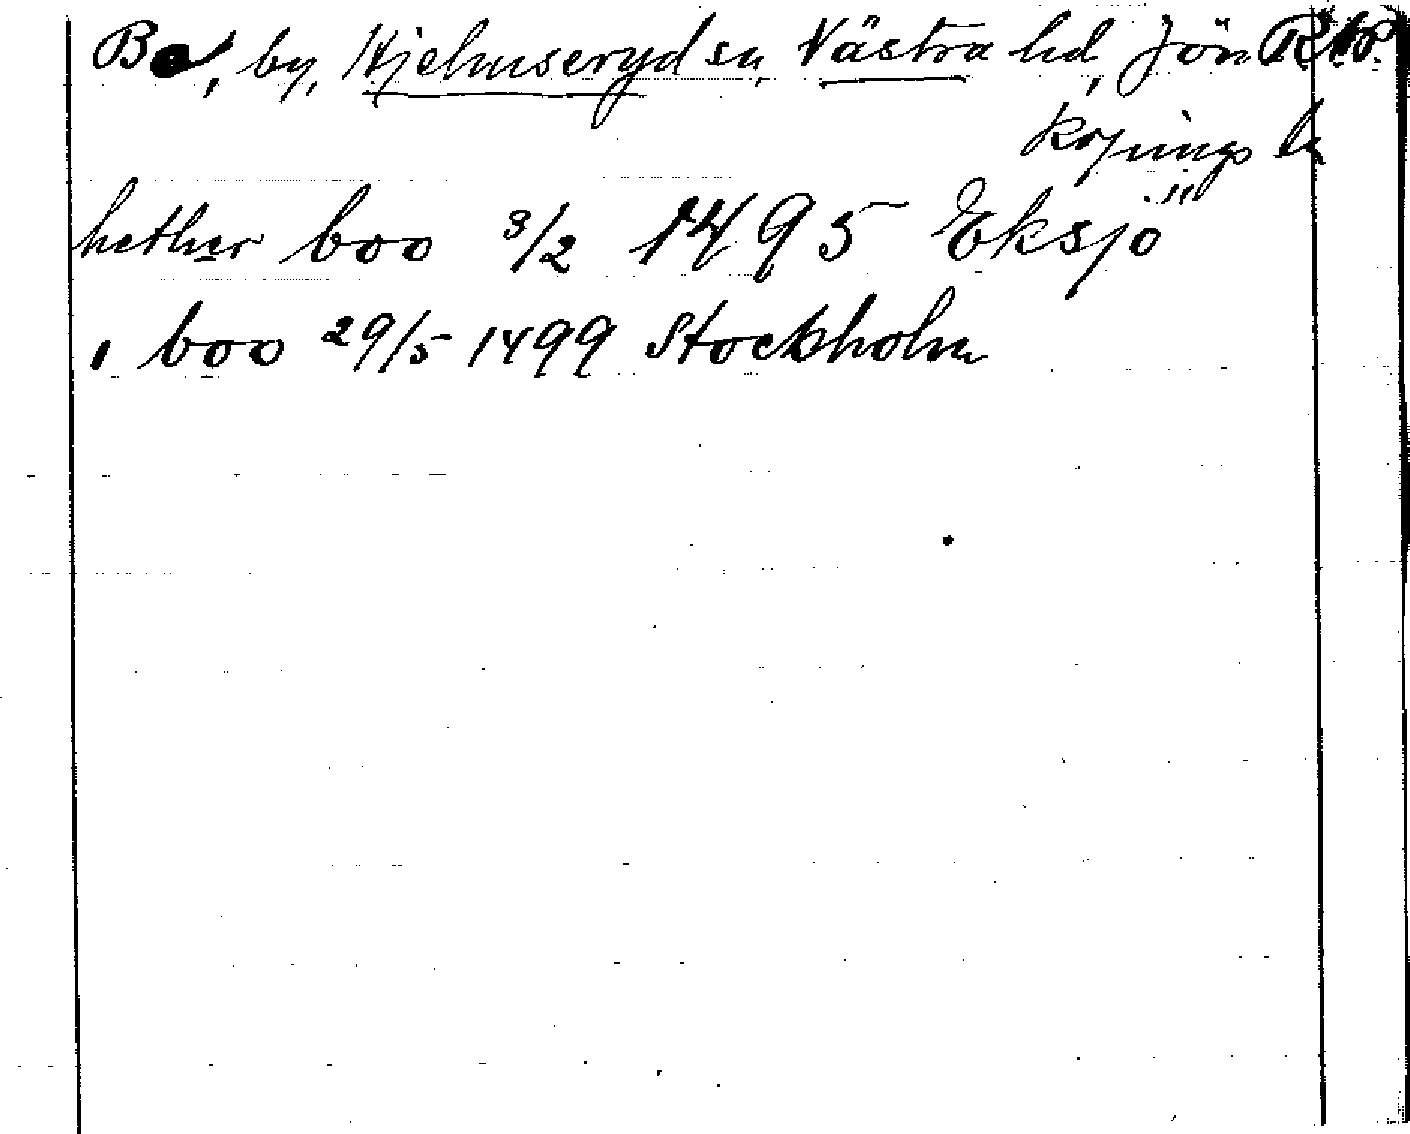 Bo, by, Hjelmseryd sn, Västra hd, Jön R.A.P.
köpings ln
hether boo 3/2 1495 Eksjö
i boo 29/5 1499 Stockholm